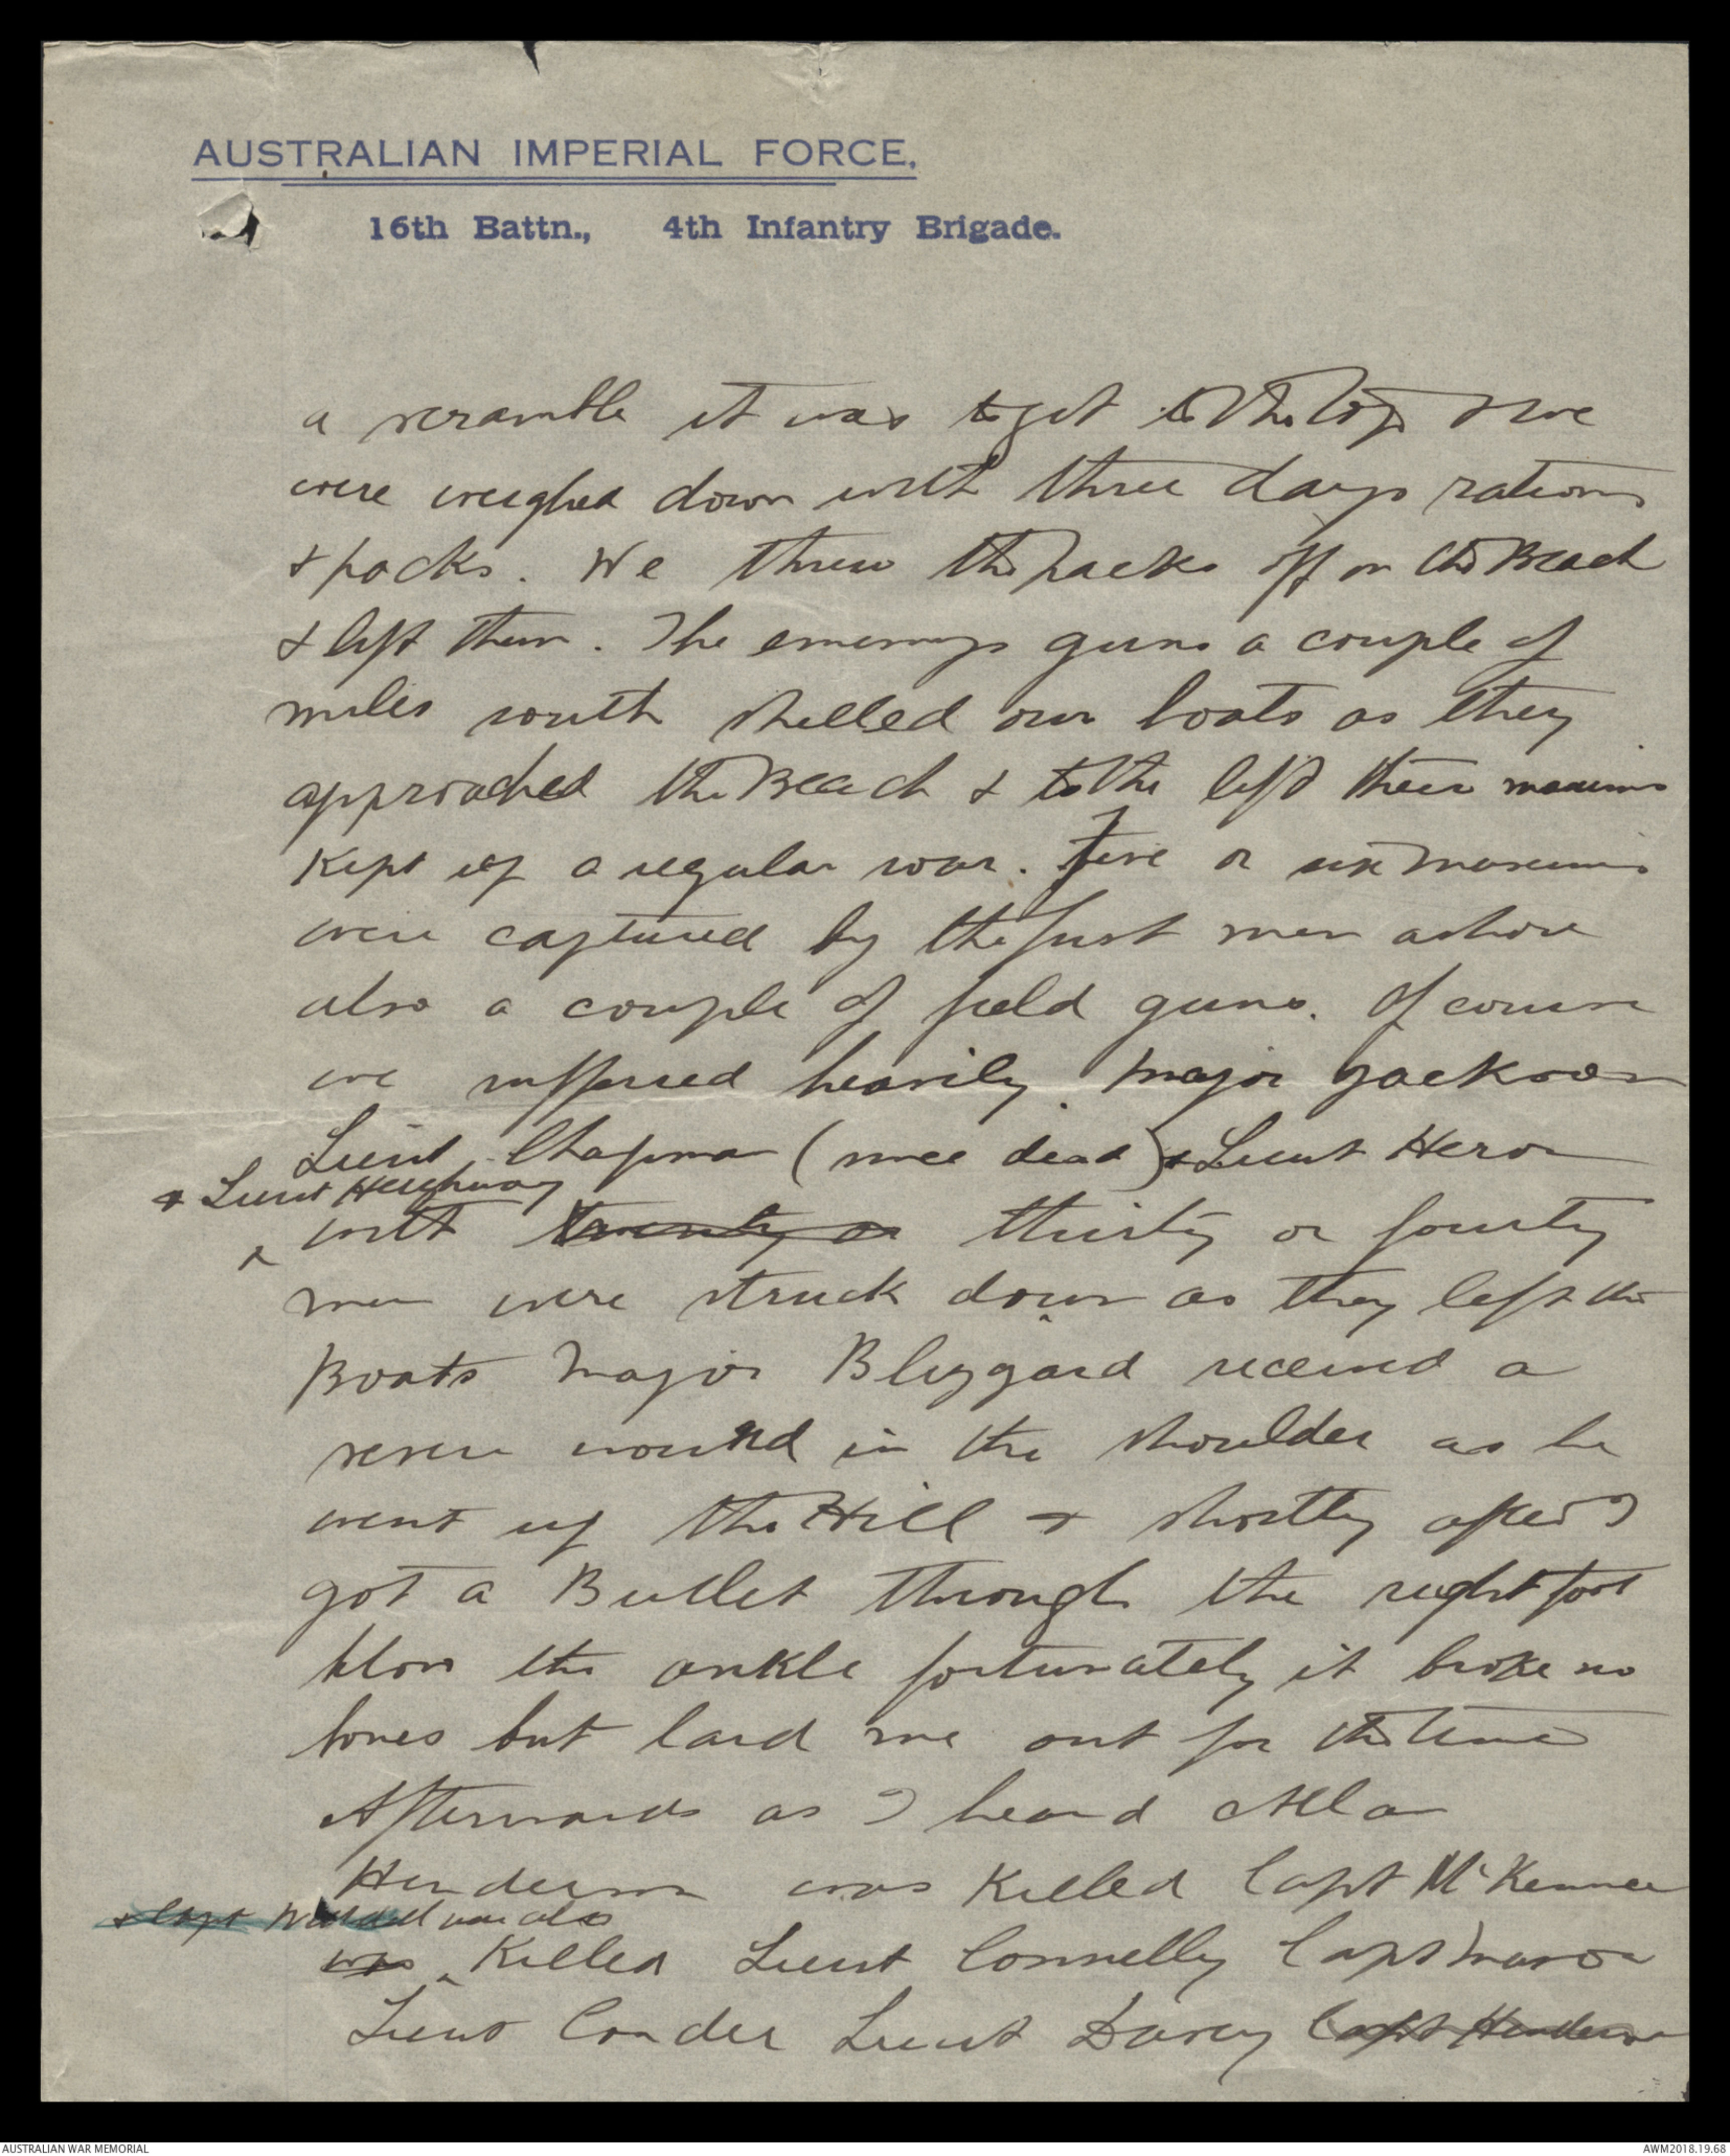 AUSTRALIAN IMPERIAL FORCE,
16th Battn., 4th Infantry Brigade.
a scramble it was to get to the top & we
were weighed down with three days rations
& packs. We threw the packs off on the Beach
& left them. The enemys guns a couple of
miles south shelled our boats as they
approached the Beach & to the left their maxims
kept up a regular roar. Five or six maxims
were captured by the first men ashore
also a couple of field guns. Of course
we suffered heavily. Major Jackson
Lieut. Chapman (since dead) & Lieut Heron
& Lieut Heighway
with twenty or thirty or fourty
men were struck down as they left the
Boats Major Blizzard received a
severe wound in the shoulder as he
went up the Hill & shortly after I
got a Bullet through the right foot
blow the ankle fortunately it broke no
bones but laid me out for the time
Afterwards as I heard Alla
Henderson was Killed Capt McKennee
& Capt was also
was Killed Lieut Connelly Capt Marsor
Lieut Conder Lieut Darcy Capt Henderson
AUSTRALIAN WAR MEMORIAL
AWM2018.19.68